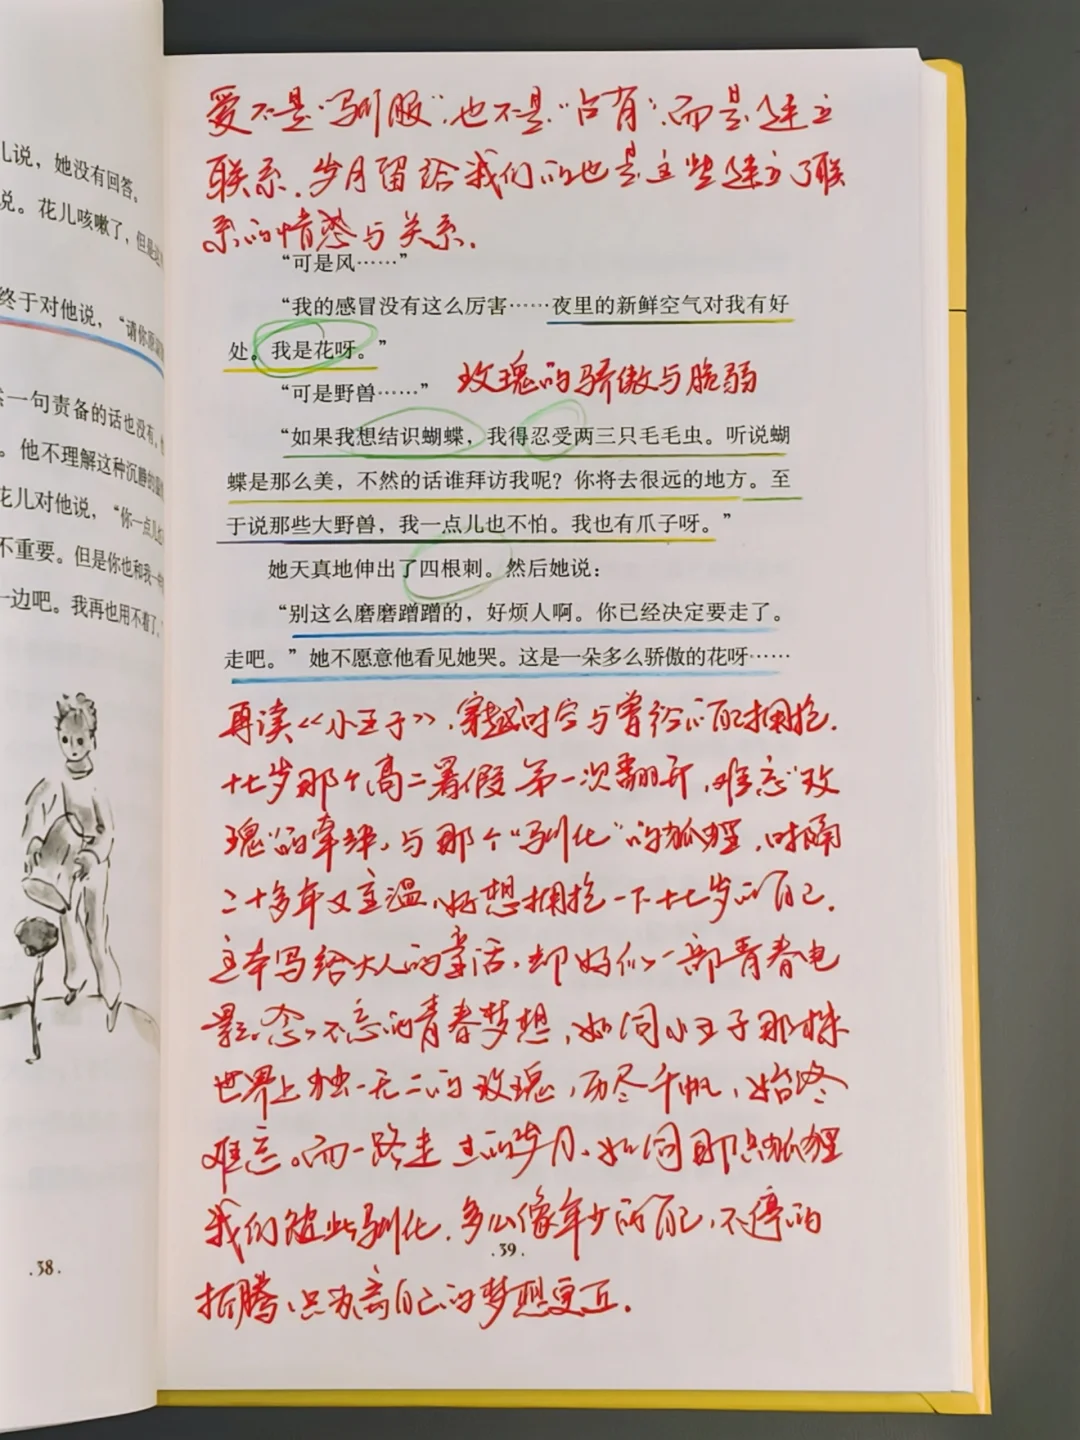 儿说，她没有回答。
说。花儿咳嗽了，但是
终于对他说，“请你原谅
一句责备的话也没有。
。他不理解这种沉静的
花儿对他说，“你一点儿也
不重要。但是你也和我一样
一边吧。我再也用不着了。
.38.
爱不是“驯服”，也不是“占有”，而是建立
联系，岁月留给我们的也是这些建立了联
系的情愫与关系.
“可是风……”
“我的感冒没有这么厉害……夜里的新鲜空气对我有好
处。我是花呀。”
“可是野兽……”
玫瑰的骄傲与脆弱
“如果我想结识蝴蝶，我得忍受两三只毛毛虫。听说蝴
蝶是那么美，不然的话谁拜访我呢？你将去很远的地方。至
于说那些大野兽，我一点儿也不怕。我也有爪子呀。”
她天真地伸出了四根刺。然后她说：
“别这么磨磨蹭蹭的，好烦人啊。你已经决定要走了。
走吧。”她不愿意他看见她哭。这是一朵多么骄傲的花呀……
再读《小王子》，穿越时空与曾经的自己拥抱.
十七岁那个高二暑假第一次翻开，难忘“玫
瑰”的牵绊，与那个“驯化”的狐狸，时隔
二十多年又重温，好想拥抱一下十七岁的自己.
这本写给大人的童话，却好似一部青春电
影。念念不忘的青春梦想，如同小王子那株
世界上独一无二的玫瑰，历尽千帆，始终
难忘。而一路走来的岁月，如同那只狐狸
我们彼此驯化，多么像年少的自己，不停的
折腾，只为离自己的梦想更近.
.39.